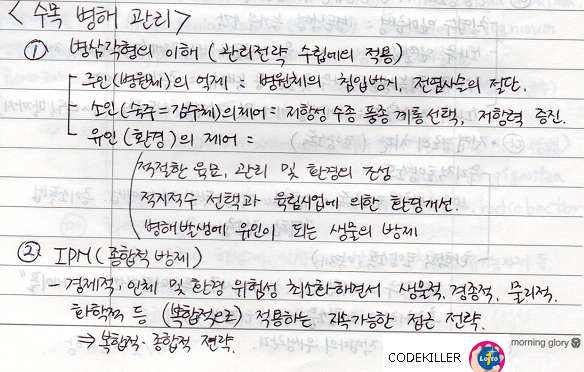 < 수목 병해 관리 >
① 병삼각형의 이해 (관리전략 수립에의 적용)
주인(병원체)의 억제 : 병원체의 침입방지, 전염사슬의 절단.
소인(숙주=감수체)의 제어 : 저항성 수종 품종 계통선택, 저항력 증진.
유인(환경)의 제어 :
적절한 육묘, 관리 및 환경의 조성
적지적수 선택과 육림사업에 의한 환경개선.
병해발생에 유인이 되는 생물의 방제
② IPM (종합적 방제)
- 경제적, 인체 및 환경 위험성 최소화하면서 생물적, 경종적, 물리적,
화학적 등 (복합적으로) 적용하는 지속가능한 접근 전략.
⇒ 복합적·종합적 전략.
CODEKILLER Lotto morning glory